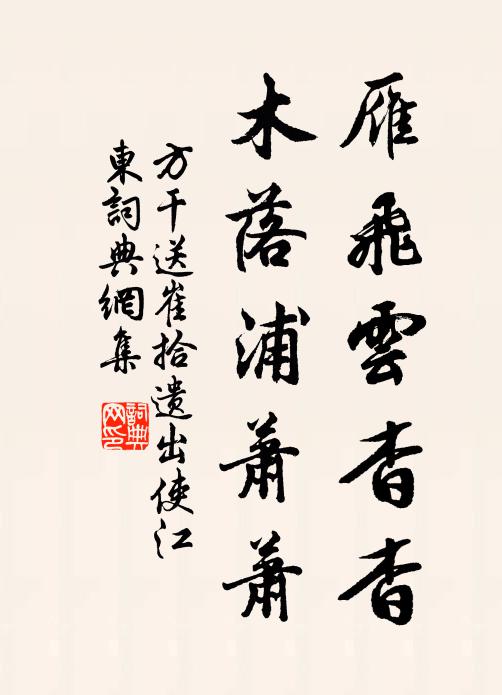 雁飛雲杳杳
木落浦蕭蕭
方干送崔拾遺出使江
東詞典網集
詞典
网印